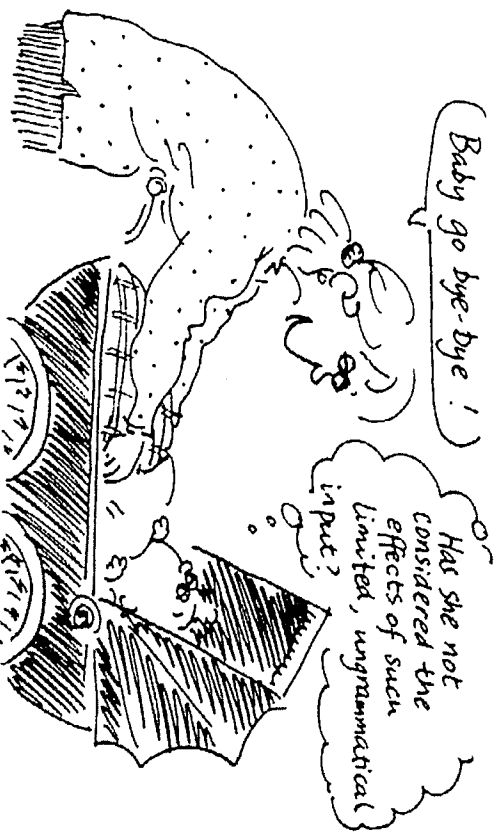 Baby go bye-bye!
Has she not
considered the
effects of such
limited, ungrammatical
input?